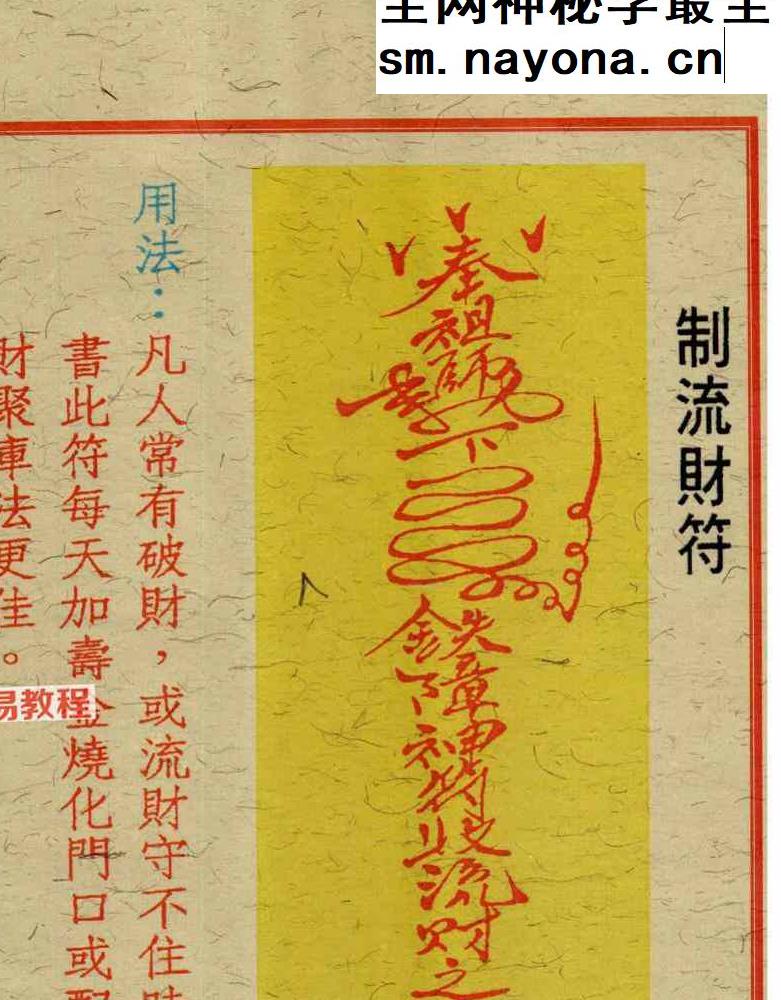 sm.nayona.cn
制流財符
奉祖師號
下
鐵障神符收流財之
用法：
凡人常有破財，或流財守不住時
書此符每天加壽金燒化門口或配
財聚庫法更佳。
易教程